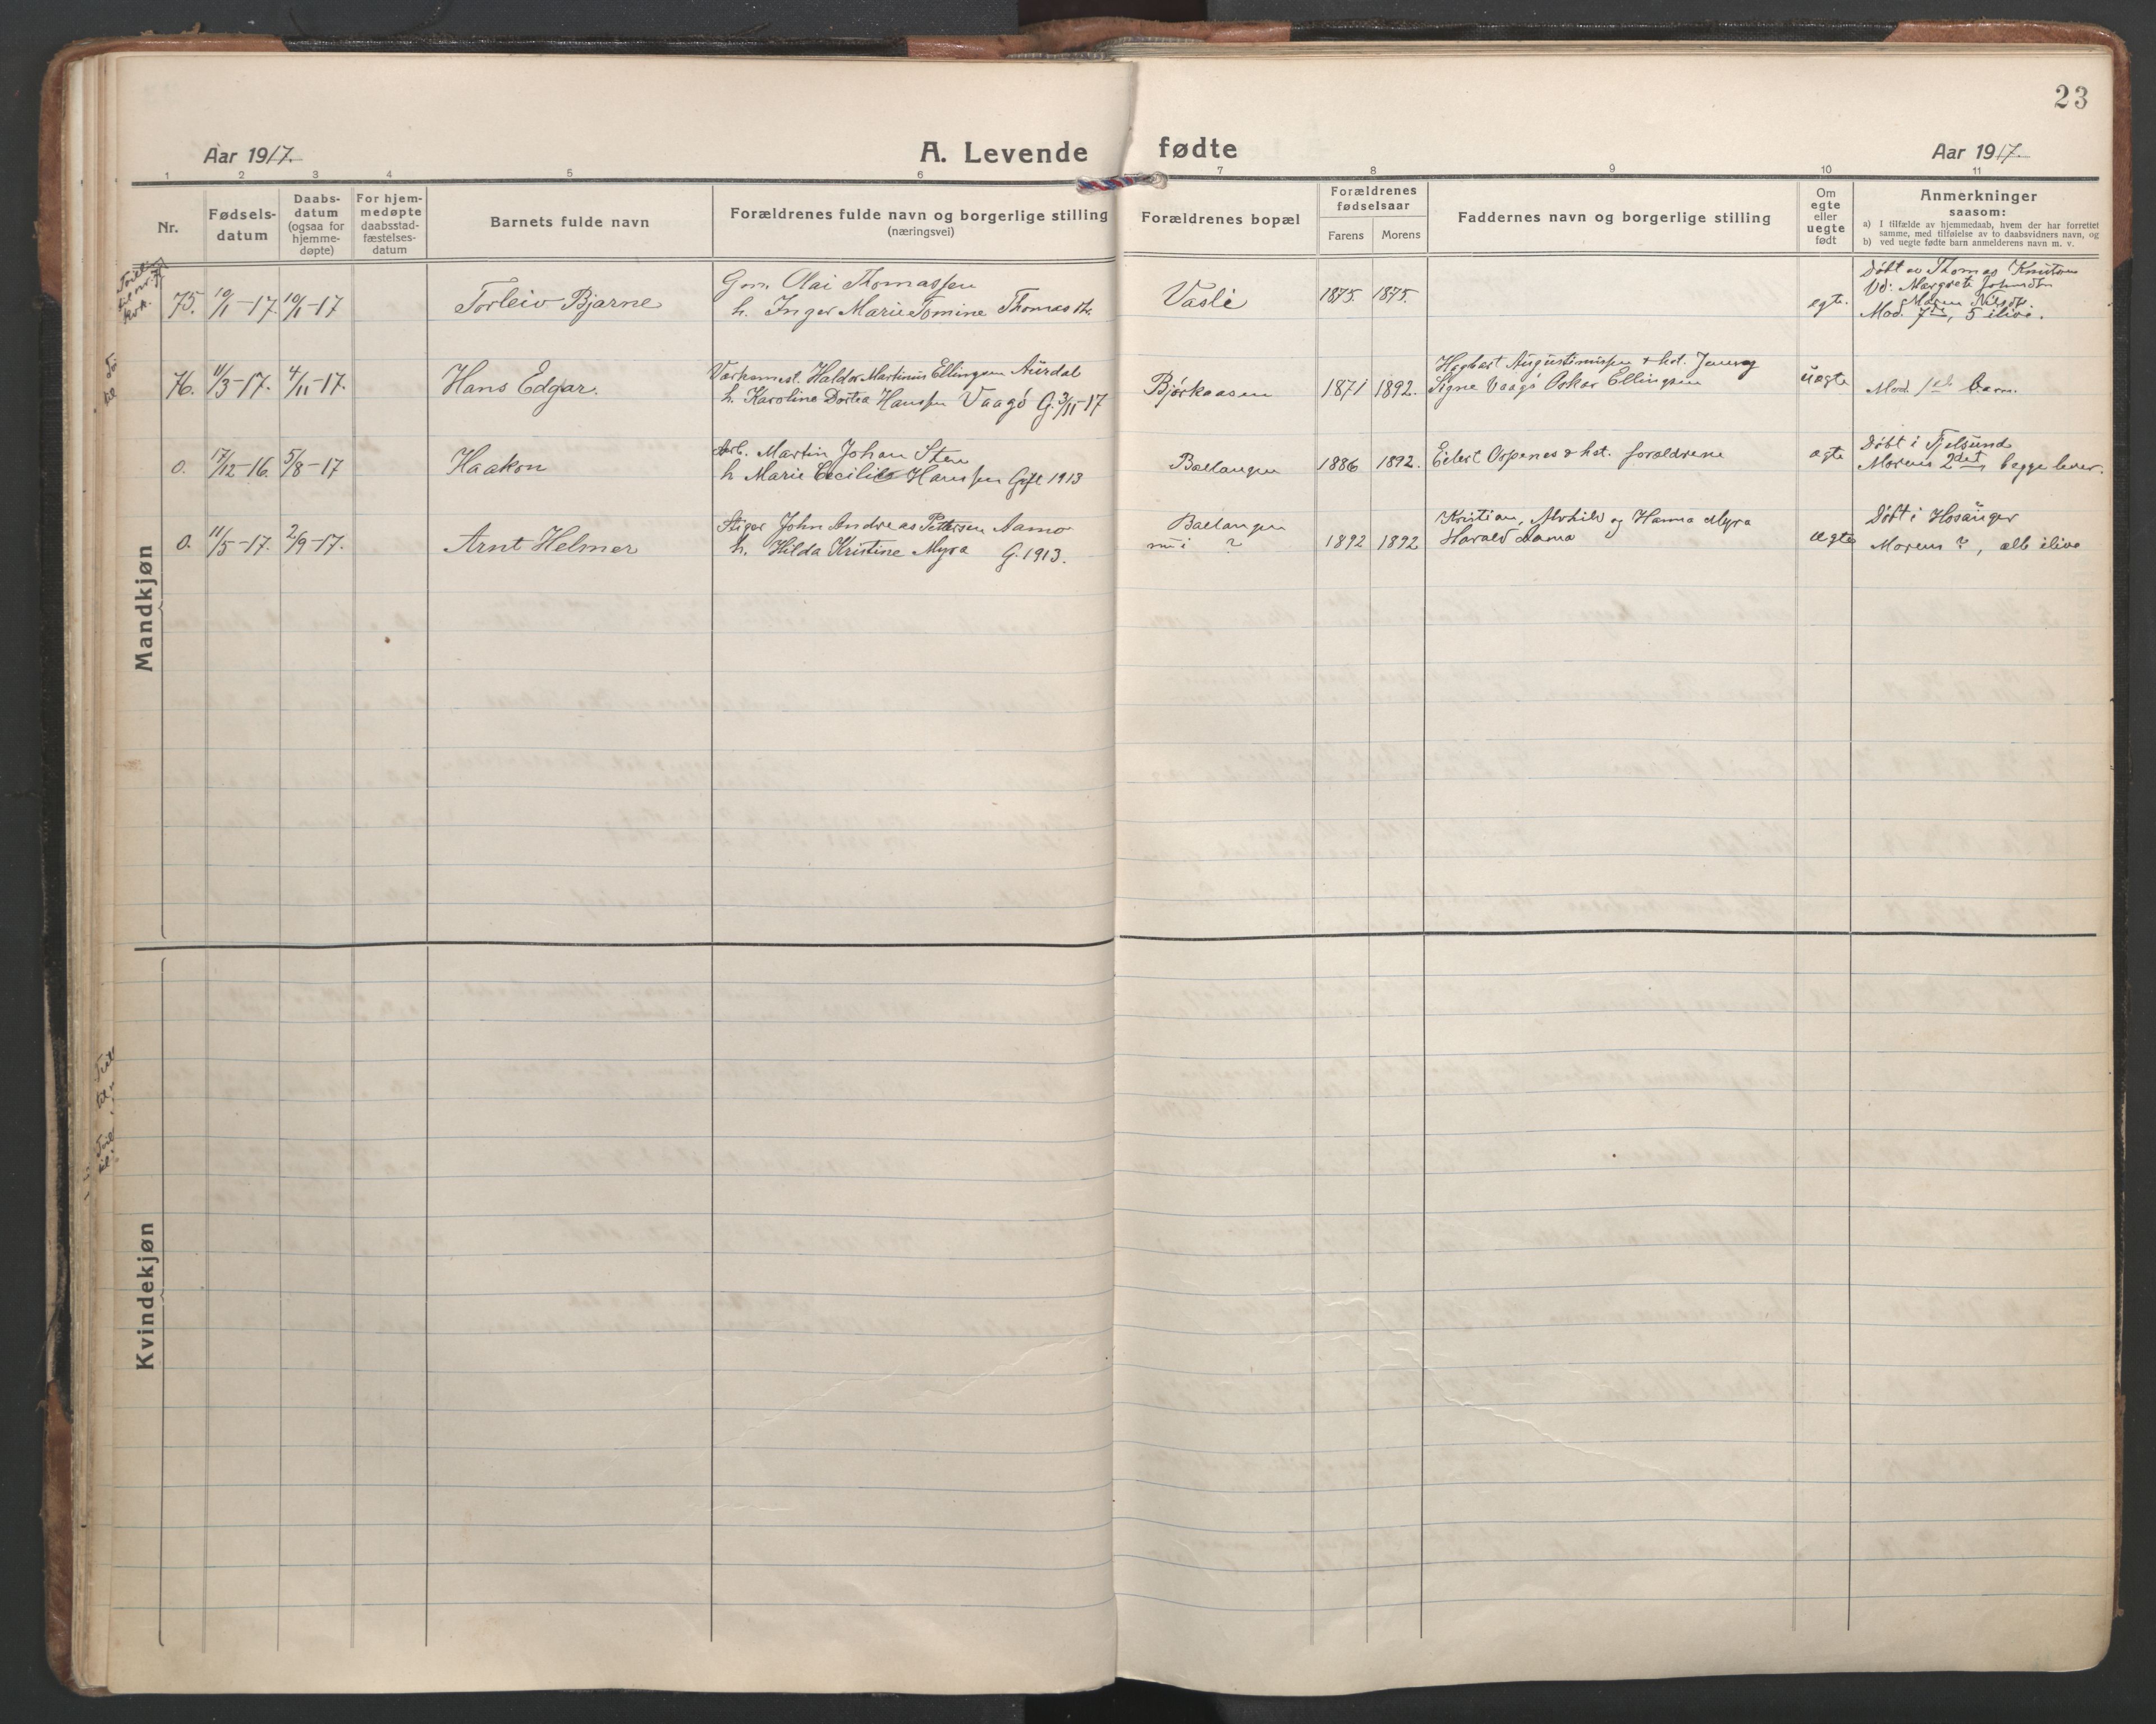 23
Aar 1917.
A. Levende fødte
Aar 1917.
1 2 3 4 5 6 7 8 9 10 11
Nr.
Fødsels-
datum
Daabs-
datum
(ogsaa for
hjemme-
døpte)
For hjem-
medøpte
daabsstad-
fæstelses-
datum
Barnets fulde navn
Forældrenes fulde navn og borgerlige stilling
(næringsvei)
Forældrenes bopæl
Forældrenes
fødselsaar
Farens
Morens
Faddernes navn og borgerlige stilling
Om
egte
eller
uegte
født
Anmerkninger
saasom:
a) I tilfælde av hjemmedaab, hvem der har forrettet
samme, med tilføielse av to daabsvidners navn, og
b) ved uegte fødte barn anmelderens navn m. v.
Mandkjøn
75. 10/1-17. 10/1-17 Torleiv Bjarne
Gm. Olai Thomassen
h. Inger Marie Tomine Thomasdt.
Vasli 1875. 1875. egte.
Døbt av Thomas Knutsen
Vd: Margrete Johnsdtr
Maren Nilsdtr.
Mod. 7de, 5 ilive.
76. 11/3-17. 4/11-17. Hans Edgar.
Verksmest. Haldor Martinus Ellingsen Aurdal
h. Karoline Dortea Hanssen Vaagø G. 3/11-17
Bjørkaasen 1871 1892.
Hagbart Augustinussen & hst. Jenny
Signe Vaagø Oskar Ellingsen
uegte Mod. 1ste barn.
0. 17/12-16. 5/8-17 Haakon
Arb. Martin Johan Sten
h Marie Cecilie Hanssen Gift 1913
Ballangen 1886 1892.
Eilert Ospenes & hst. forældrene
egte
Døbt i Tjelsund
Morens 2det, begge lever.
0. 11/5-17. 2/9-17. Arnt Helmer
Stiger John Andreas Pettersen Aamo
h. Hilda Kristine Myra G. 1913.
Ballangen
nu i ? 1892 1892
Kristian, Alvhild og Hanna Myra
Harald Aamo
egte
Døbt i Hosanger
Morens ?, alle ilive
Kvindekjøn